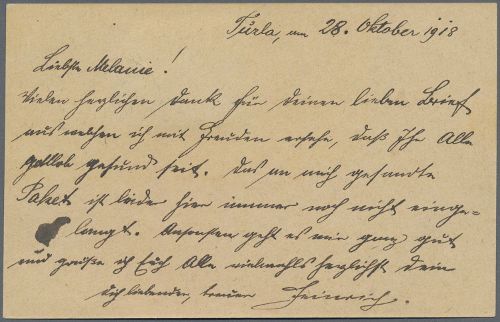 Turla, am 28. Oktober 1918
Liebste Melanie!
Vielen herzlichen Dank für Deinen lieben Brief
aus welchen ich mit Freuden ersehe, daß Ihr Alle
gottlob gesund seit. Das an mich gesandte
Paket ist leider hier immer noch nicht einge-
langt. Ansonsten geht es mir ganz gut
und grüße ich Euch Alle vielmahls herzlichst Dein
Dich liebender, treuer Heinrich.